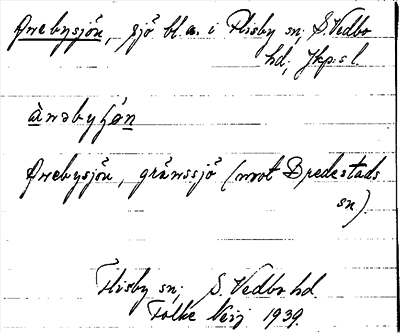 Anebysjön, sjö bl.a. i Flisby sn; S. Vedbo
hd; Jkp:s l
ànəbyʃǿn
Anebysjön, gränssjö (mot Bredestads
sn).
Flisby sn; S. Vedbo hd.
Folke 1939.